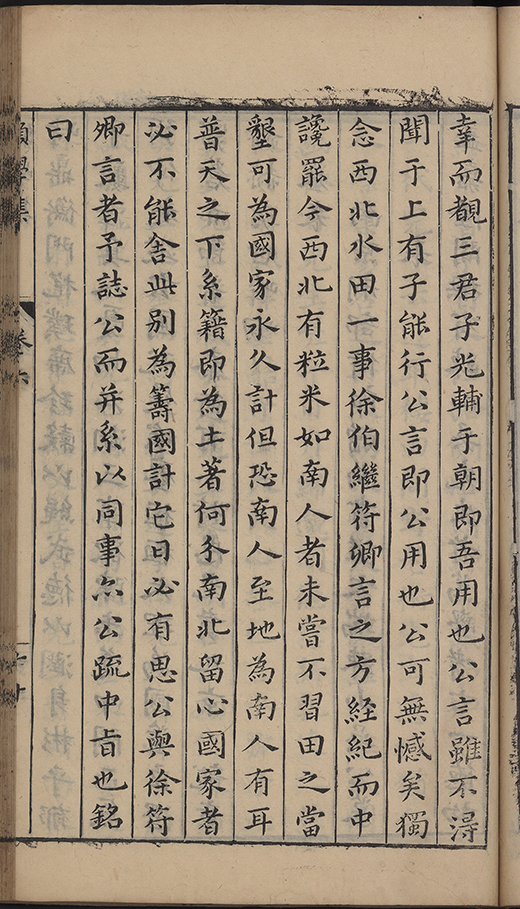 幸而覩三君子光輔于朝即吾用也公言雖不淂
聞于上有子能行公言即公用也公可無憾矣獨
念西北水田一事徐伯繼符卿言之方經紀而中
讒罷今西北有粒米如南人者未嘗不習田之當
墾可為國家永久計但恐南人至地為南人有耳
普天之下系籍即為土著何分南北留心國家者
必不能舍此别為籌國計它日必有思公與徐符
卿言者予誌公而并系以同事尒公疏中旨也銘
曰
學集
卷六